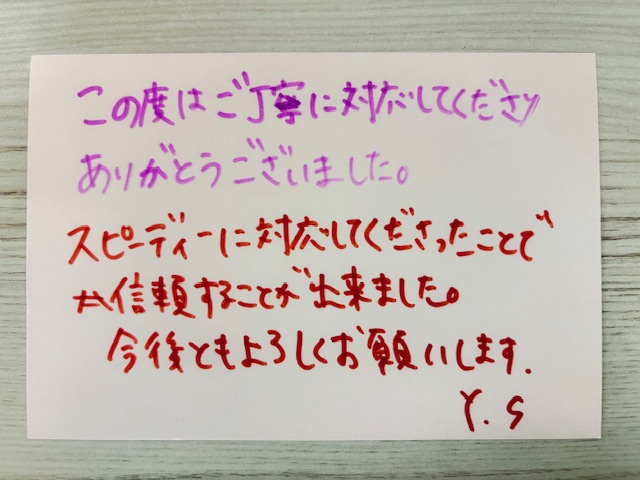 この度はご丁寧に対応してくださり
ありがとうございました。
スピーディーに対応してくださったことで
信頼することが出来ました。
今後ともよろしくお願いします.
Y. S